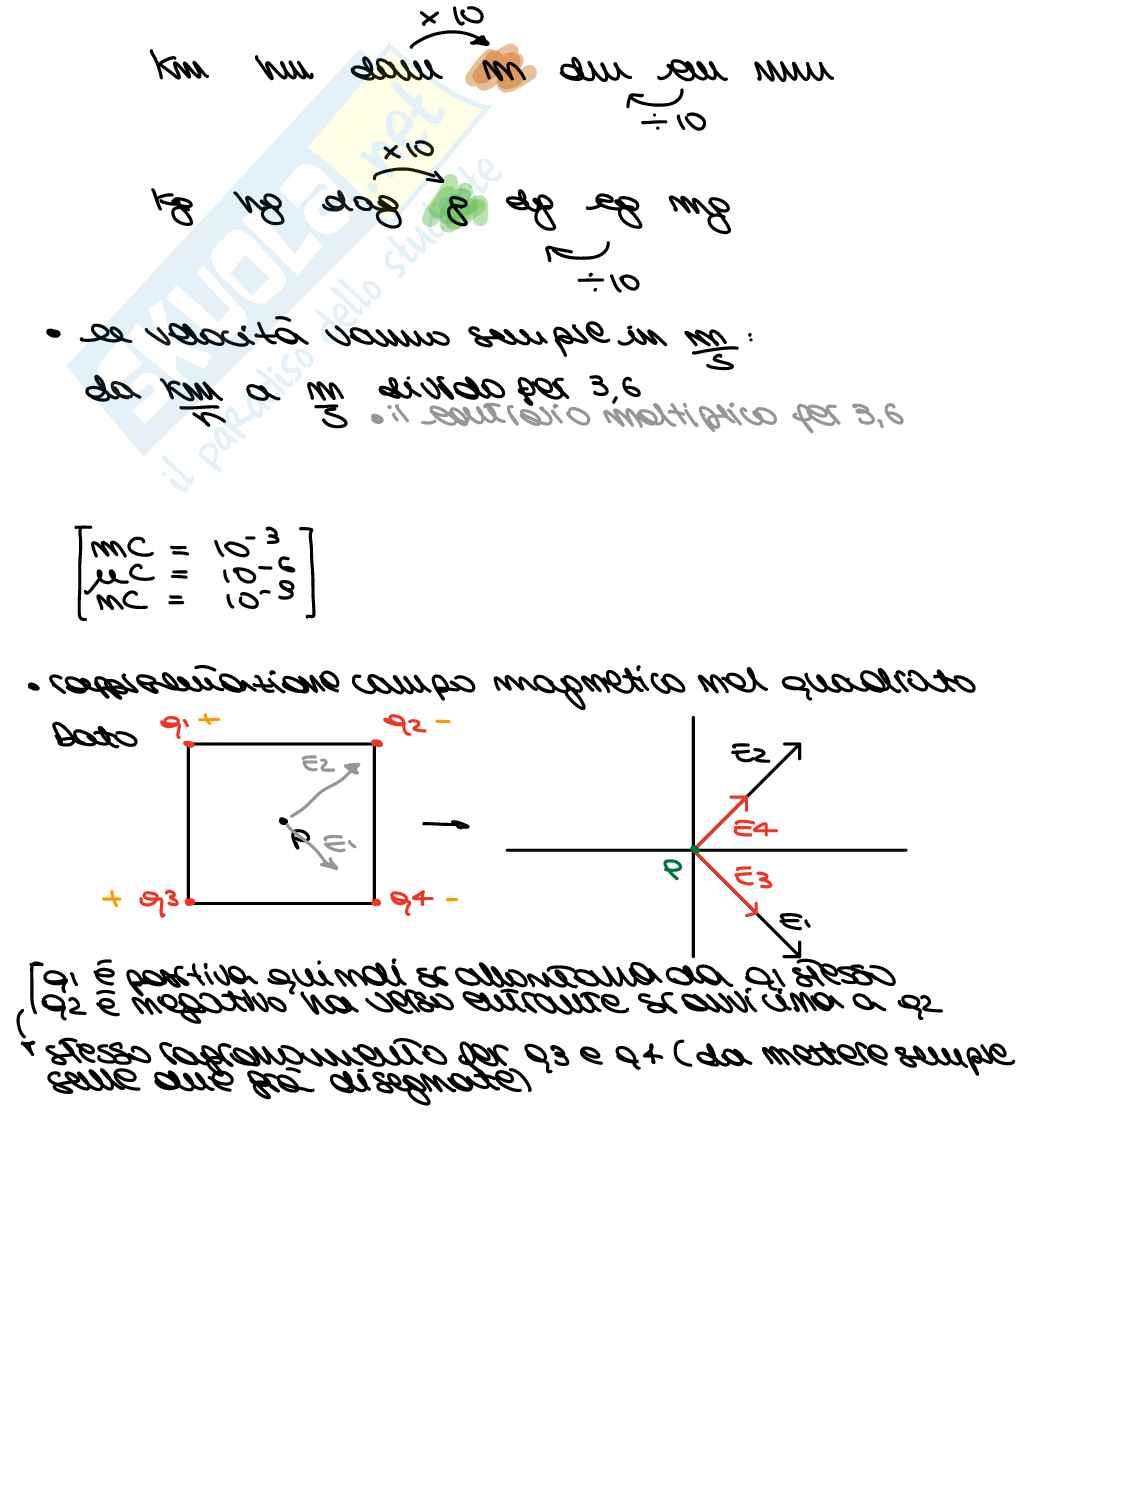 x 10
km hm dam m dm cm mm
÷10
x10
kg hg dag g dg cg mg
÷10
• le velocità vanno sempre in m/s :
da km/h a m/s divido per 3,6
• il contrario moltiplico per 3,6
SKUOLA.net
il paradiso dello studente
mC = 10^-3
μC = 10^-6
nC = 10^-9
• rappresentazione campo magnetico nel quadrato
Dato
q1 + q2 -
E2
P E1
+ q3 q4 -
E2
E4
P E3
E1
q1 è positiva quindi si allontana da q1 stesso
q2 è negativo ha verso entrante si avvicina a q2
stesso ragionamento per q3 e q4 (da mettere sempre
sulle due già disegnate)